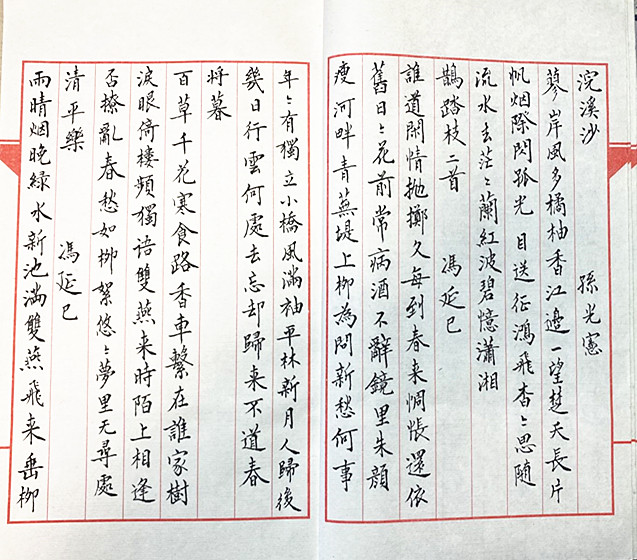 浣溪沙 孫光憲
蓼岸風多橘柚香江邊一望楚天長片
帆烟際閃孤光 目送征鴻飛杳〻思随
流水去茫〻蘭紅波碧憶瀟湘
鵲踏枝二首 馮延巳
誰道閑情抛擲久每到春来惆悵還依
舊日〻花前常病酒不辭鏡里朱顔
瘦河畔青蕪堤上柳為問新愁何事
年〻有獨立小橋風滿袖平林新月人歸後
幾日行雲何處去忘却歸来不道春
将暮
百草千花寒食路香車繫在誰家樹
淚眼倚樓頻獨語雙燕来時陌上相逢
否撩亂春愁如柳絮悠〻夢里无尋處
清平樂 馮延巳
雨晴烟晚綠水新池満雙燕飛来垂柳